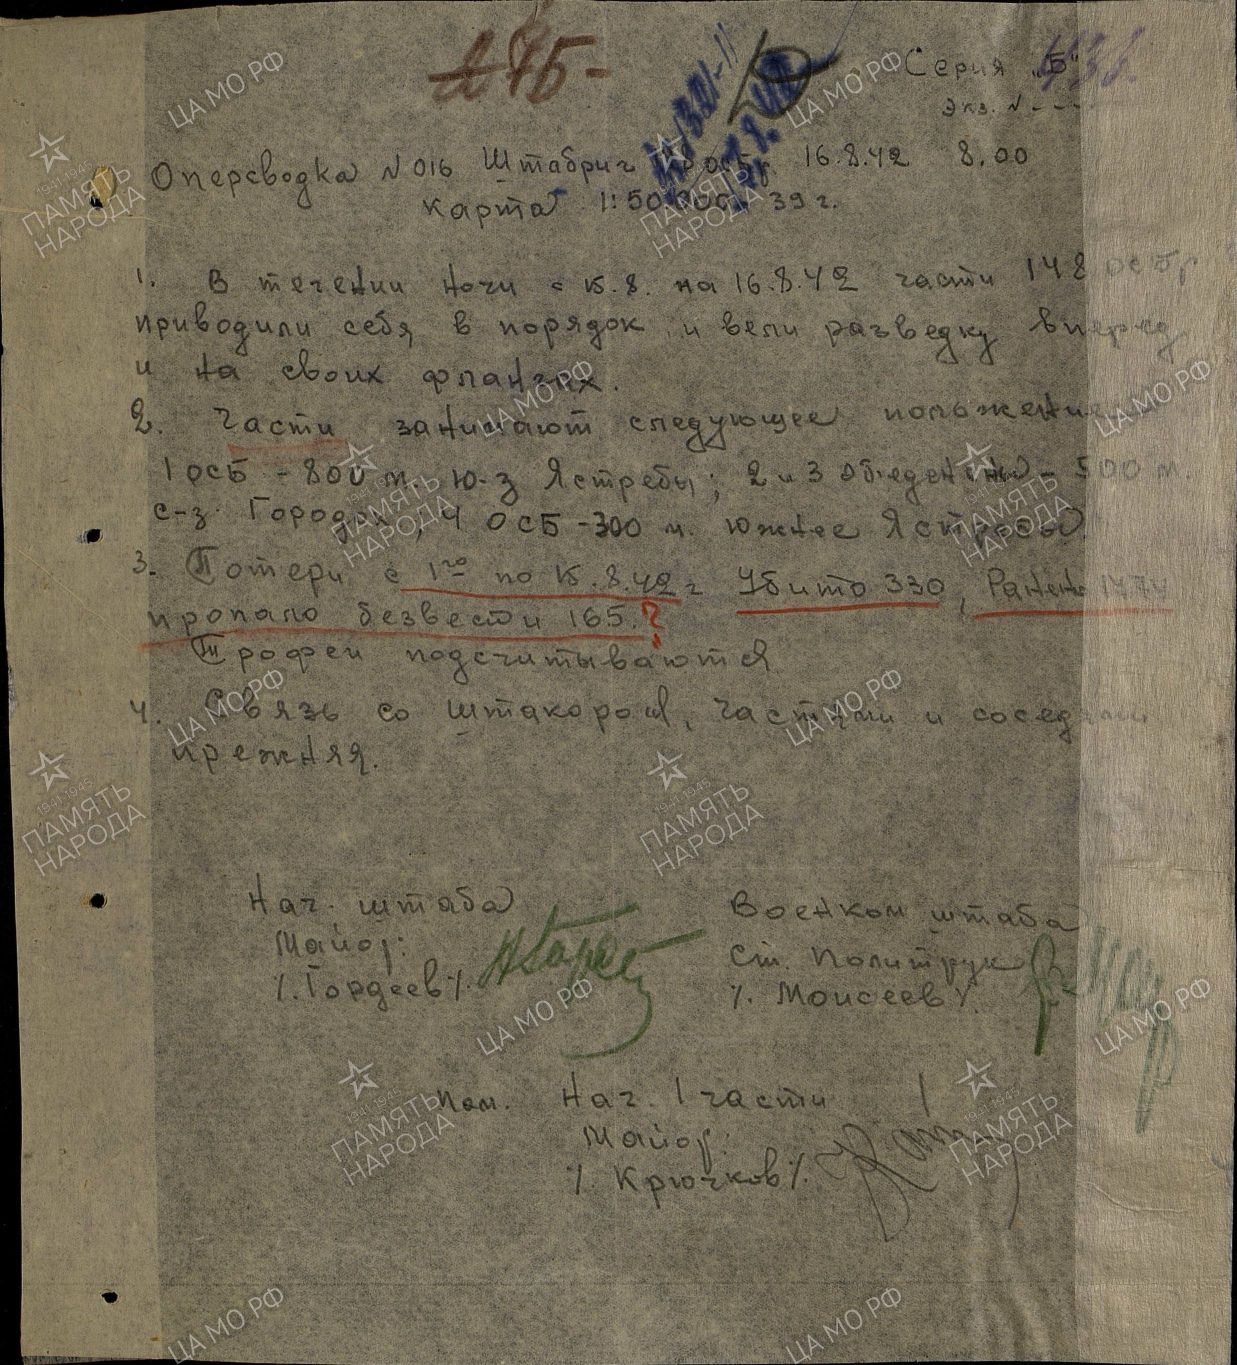 275-
Серия "Б"
Экз. N---
Оперсводка N 016 Штабриг 16.8.42 8.00
Карта 1:50.000. 39 г.
1. В течении ночи с 15.8. на 16.8.42 части 148 осбр
приводили себя в порядок и вели разведку вперед
и на своих флангах.
2. Части занимают следующее положение
1 ОСБ - 800 м. Ю-З Ястребы; 2 и 3 объеденены - 500 м.
с-з. Городок, 4 ОСБ - 300 м. южнее Ястребы.
3. Потери с 1го по 15.8.42 г Убито 330, Ранено 1774
пропало безвести 165.?
Трофеи подсчитываются
4. Связь со штакором, частями и соседями
прежняя.
Нач. штаба
Майор:
/. Гордеев /.
Военком штаба
Ст. Политрук
/. Моисеев /.
Пом. Нач. 1 части
Майор:
/. Крючков /.
ЦА МО РФ
ПАМЯТЬ
НАРОДА